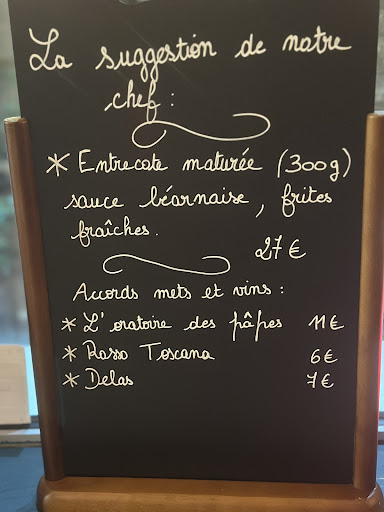 La suggestion de notre
chef :
* Entrecote maturée (300g)
sauce béarnaise, frites
fraîches.
27 €
Accords mets et vins :
* L'oratoire des pâpes 11 €
* Rosso Toscana 6 €
* Delas 7 €